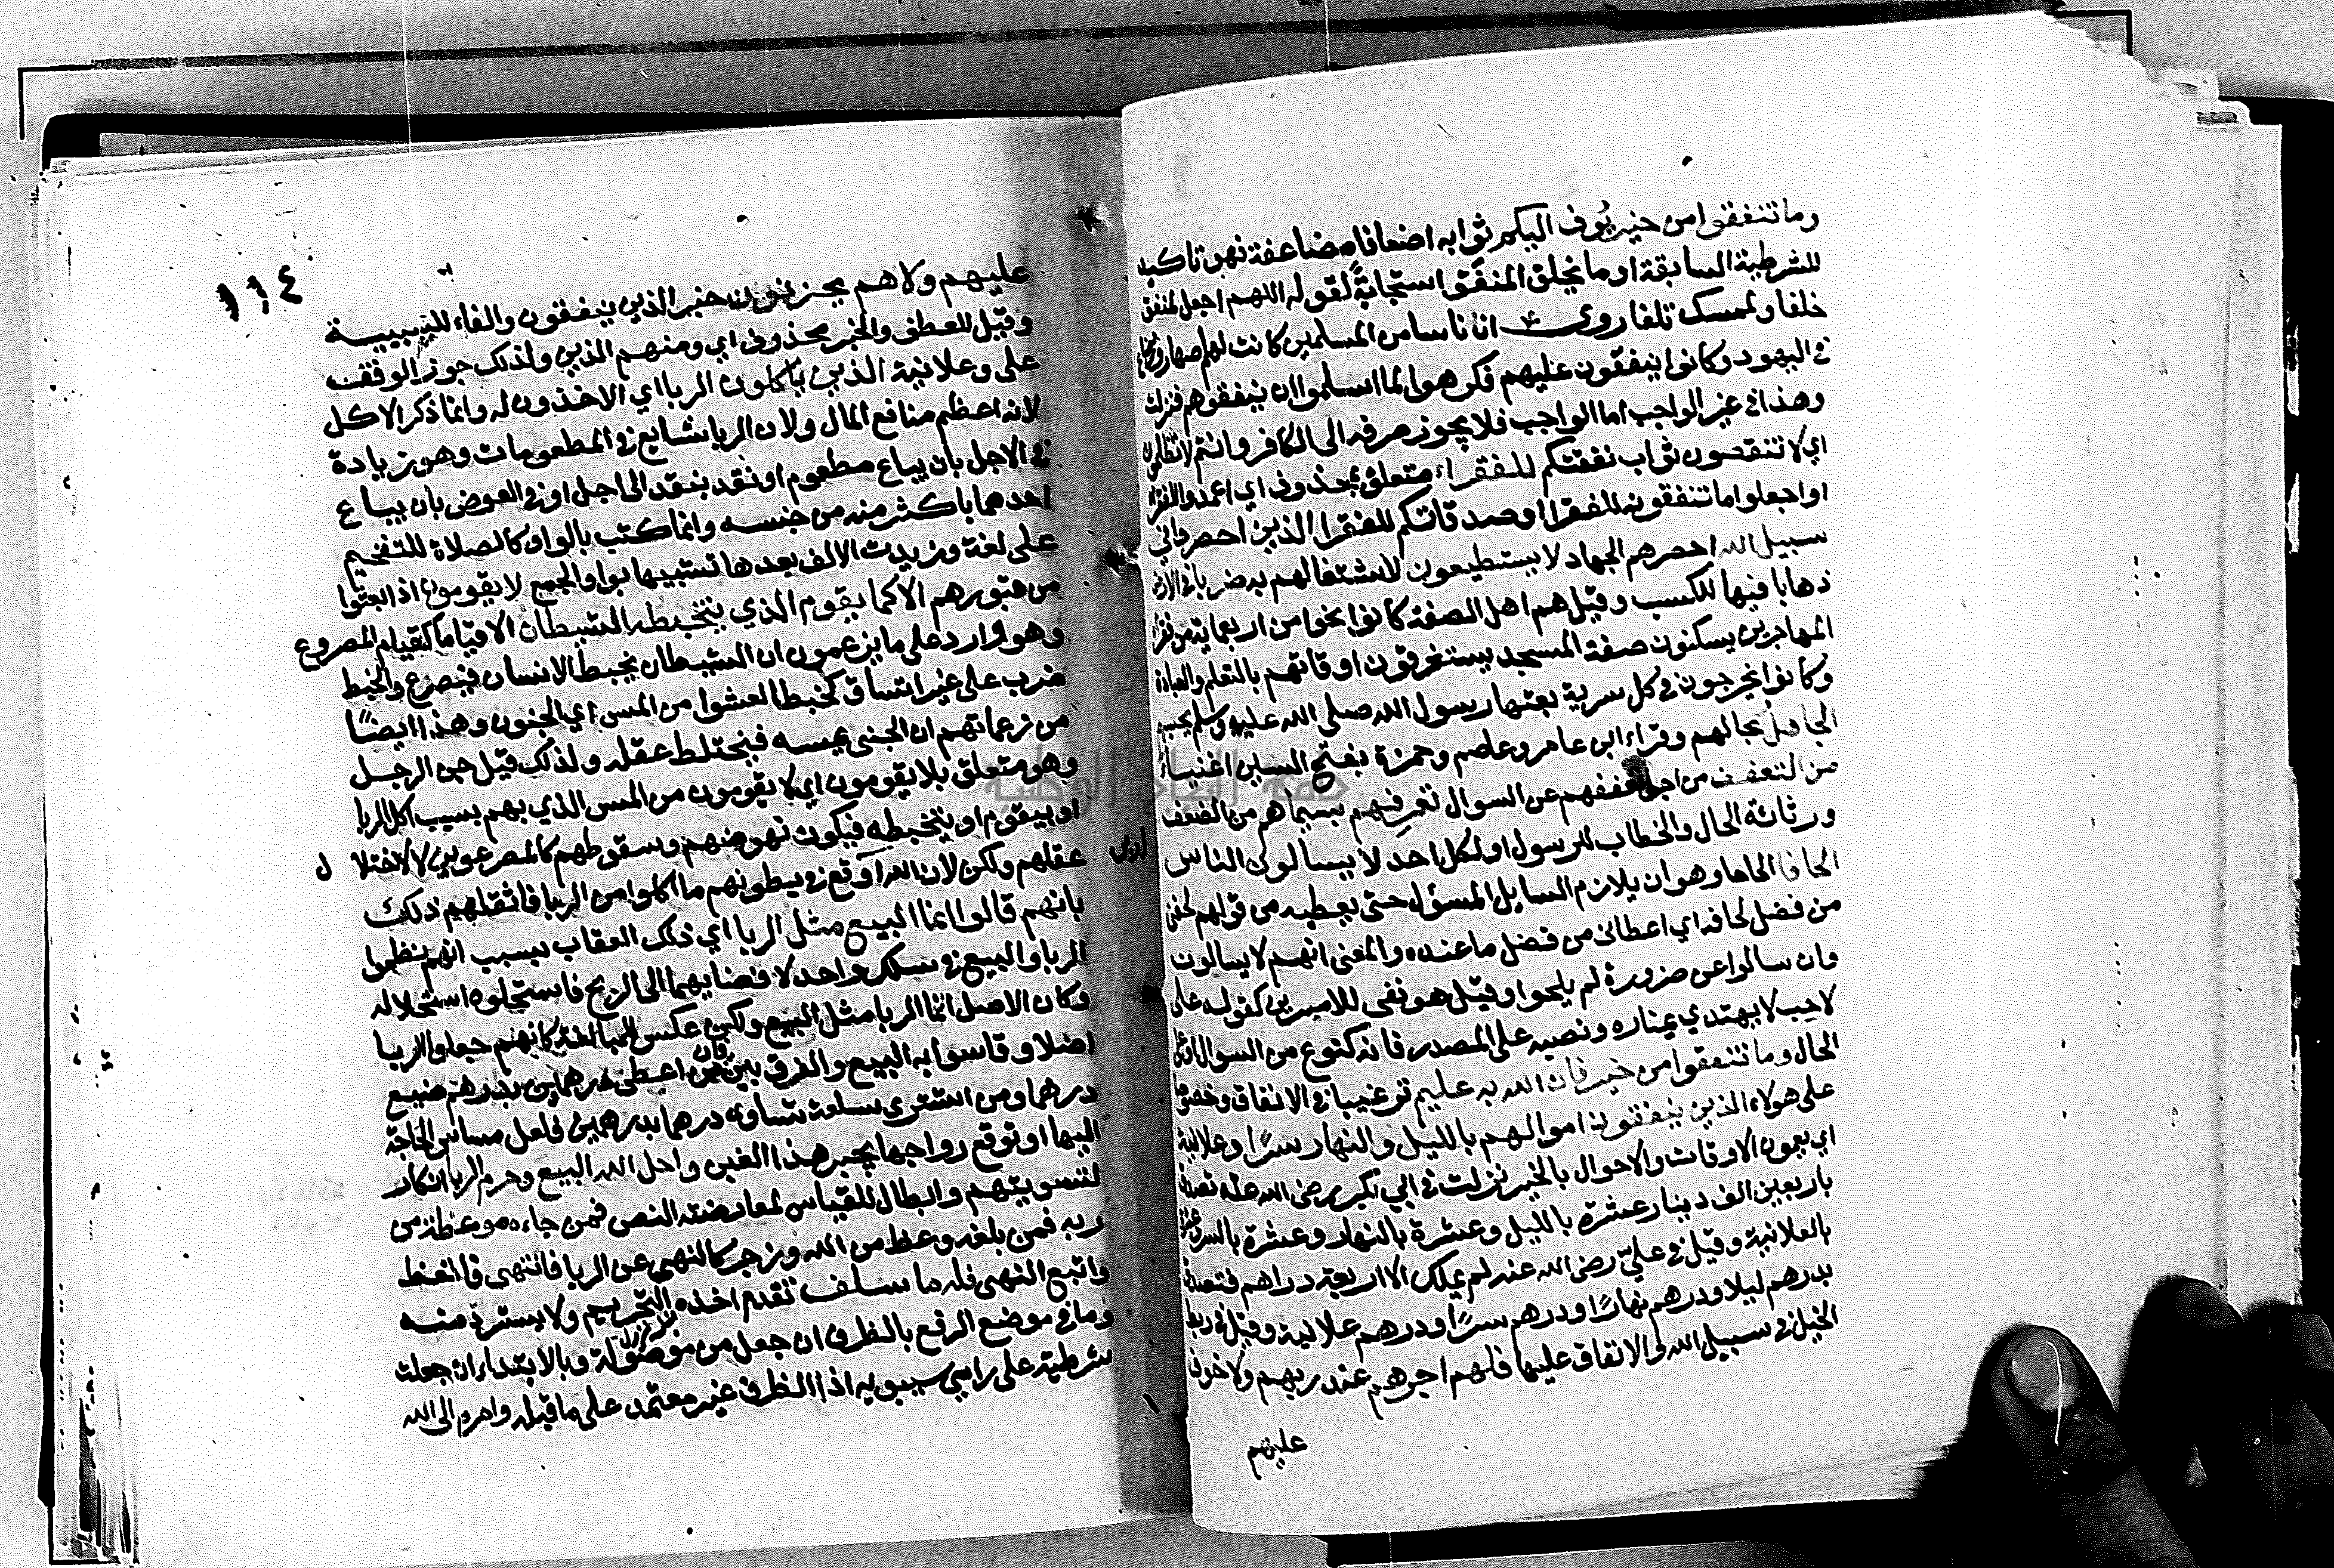 وما تنفقوا من خير يُوف اليكم ثوابه اضعافا مضاعفة فهو تاكيد
للشرطية السابقة او ما يخلق المنفق استجابةً لقوله اللهم اجعل لمنفق
خلفا ولممسك تلفا روى ان ناسا من المسلمين كانت لهم اصهار ورضاع
في اليهود وكانوا ينفقون عليهم فكرهوا لما اسلموا ان ينفقوهم فنزلت
وهذا في غير الواجب اما الواجب فلا يجوز صرفه الى الكافر وانتم لا تظلمون
اي لا تنقصون ثواب نفقتكم للفقراء متعلق بمحذوف اي اعمدوا للفقراء
او اجعلوا ما تنفقونه للفقرا او صدقاتكم للفقرا الذين احصروا في
سبيل الله احصرهم الجهاد لا يستطيعون لاشتغالهم به ضربا في الارض
ذهابا فيها للكسب وقيل هم اهل الصفة كانوا نحوا من اربعماية من فقراء
المهاجرين يسكنون صفة المسجد يستغرقون اوقاتهم بالتعلم والعبادة
وكانوا يخرجون في كل سرية بعثها رسول الله صلى الله عليه وسلم يحسبهم
الجاهل بحالهم وقراء ابن عامر وعاصم وحمزة بفتح السين اغنياء
من التعفف من اجل تعففهم عن السوال تعرفهم بسيماهم من الضعف
ورثاثة الحال والخطاب للرسول او لكل احد لا يسالون الناس
الحافا الحاحا وهو ان يلازم السايل المسؤل حتى يعطيه من قولهم لحفني
من فضل لحافه اي اعطاني من فضل ما عنده والمعنى انهم لا يسالون
وان سالوا عن ضرورة لم يلحوا وقيل هو نفى للامرين كقوله على
لاحب لا يهتدي بمناره ونصبه على المصدر فانه كنوع من السوال او على
الحال وما تنفقوا من خير فان الله به عليم ترغيبا في الانفاق وخصوصا
على هولاء الذين ينفقون اموالهم بالليل والنهار سرًا وعلانية
اي يعمون الاوقات والاحوال بالخير نزلت في ابي بكر رضى الله عنه تصدق
باربعين الف دينار عشرة بالليل وعشرة بالنهار وعشرة بالسر وعشرة
بالعلانية وقيل في علي رضى الله عنه لم يملك الا اربعة دراهم فتصدق
بدرهم ليلا ودرهم نهارًا ودرهم سرًا ودرهم علانية وقيل في ربط
الخيل في سبيل الله والانفاق عليها فلهم اجرهم عند ربهم ولا خوف
عليهم
١١٤
عليهم ولا هم يحزنون خبر الذين ينفقون والفاء للسببية
وقيل للعطف والخبر محذوف اي ومنهم الذين ولذلك جوز الوقف
على وعلانية الذين ياكلون الربا اي الاخذون له وانما ذكر الاكل
لانه اعظم منافع المال ولان الربا شايع في المطعومات وهو زيادة
في الاجل بان يباع مطعوم او نقد بنقد الى اجل او في العوض بان يباع
احدهما باكثر منه من جنسه وانما كتب بالواو كالصلاة للتفخيم
على لغة وزيدت الالف بعدها تشبيها بواو الجمع لا يقومون اذا بعثوا
من قبورهم الا كما يقوم الذي يتخبطه الشيطان الا قياما كقيام المصروع
وهو وارد على ما يزعمون ان الشيطان يخبط الانسان فيصرع والخبط
ضرب على غير اتساق كخبط العشوا من المس اي الجنون وهذا ايضًا
من زعماتهم ان الجنى يمسه فيختلط عقله ولذلك قيل جن الرجل
وهو متعلق بلا يقومون اي لا يقومون من المس الذي بهم بسبب اكل الربا
او بيقوم او يتخبطه فيكون نهوضهم وسقوطهم كالمصروعين لا لاختلا ل
عقلهم ولكن لان الله اربى في بطونهم ما اكلوا من الربا فاثقلهم ذلك
بانهم قالوا انما البيع مثل الربا اي ذلك العقاب بسبب انهم نظموا
الربا والبيع في سلك واحد لافضايهما الى الربح فاستحلوه استحلاله
وكان الاصل انما الربا مثل البيع ولكن عكس للمبالغة كانهم جعلوا الربا
اصلا وقاسوا به البيع والفرق بين فان من اعطى درهمين بدرهم ضيع
درهما ومن اشترى سلعة تساوى درهما بدرهمين فلعل مساس الحاجة
اليها او توقع رواجها يجبر هذا الغبن واحل الله البيع وحرم الربا انكار
لتسويتهم وابطال للقياس لمعارضته النص فمن جاءه موعظة من
ربه فمن بلغه وعظ من الله وزجر كالنهي عن الربا فانتهى فاتعظ
واتبع النهى فله ما سلف تقدم اخذه التحريم ولا يسترد منه
وما في موضع الرفع بالظرف ان جعل من موصولة وبالابتداء ان جعلت
شرطية على راي سيبويه اذ الظرف غير معتمد على ما قبله وامره الى الله